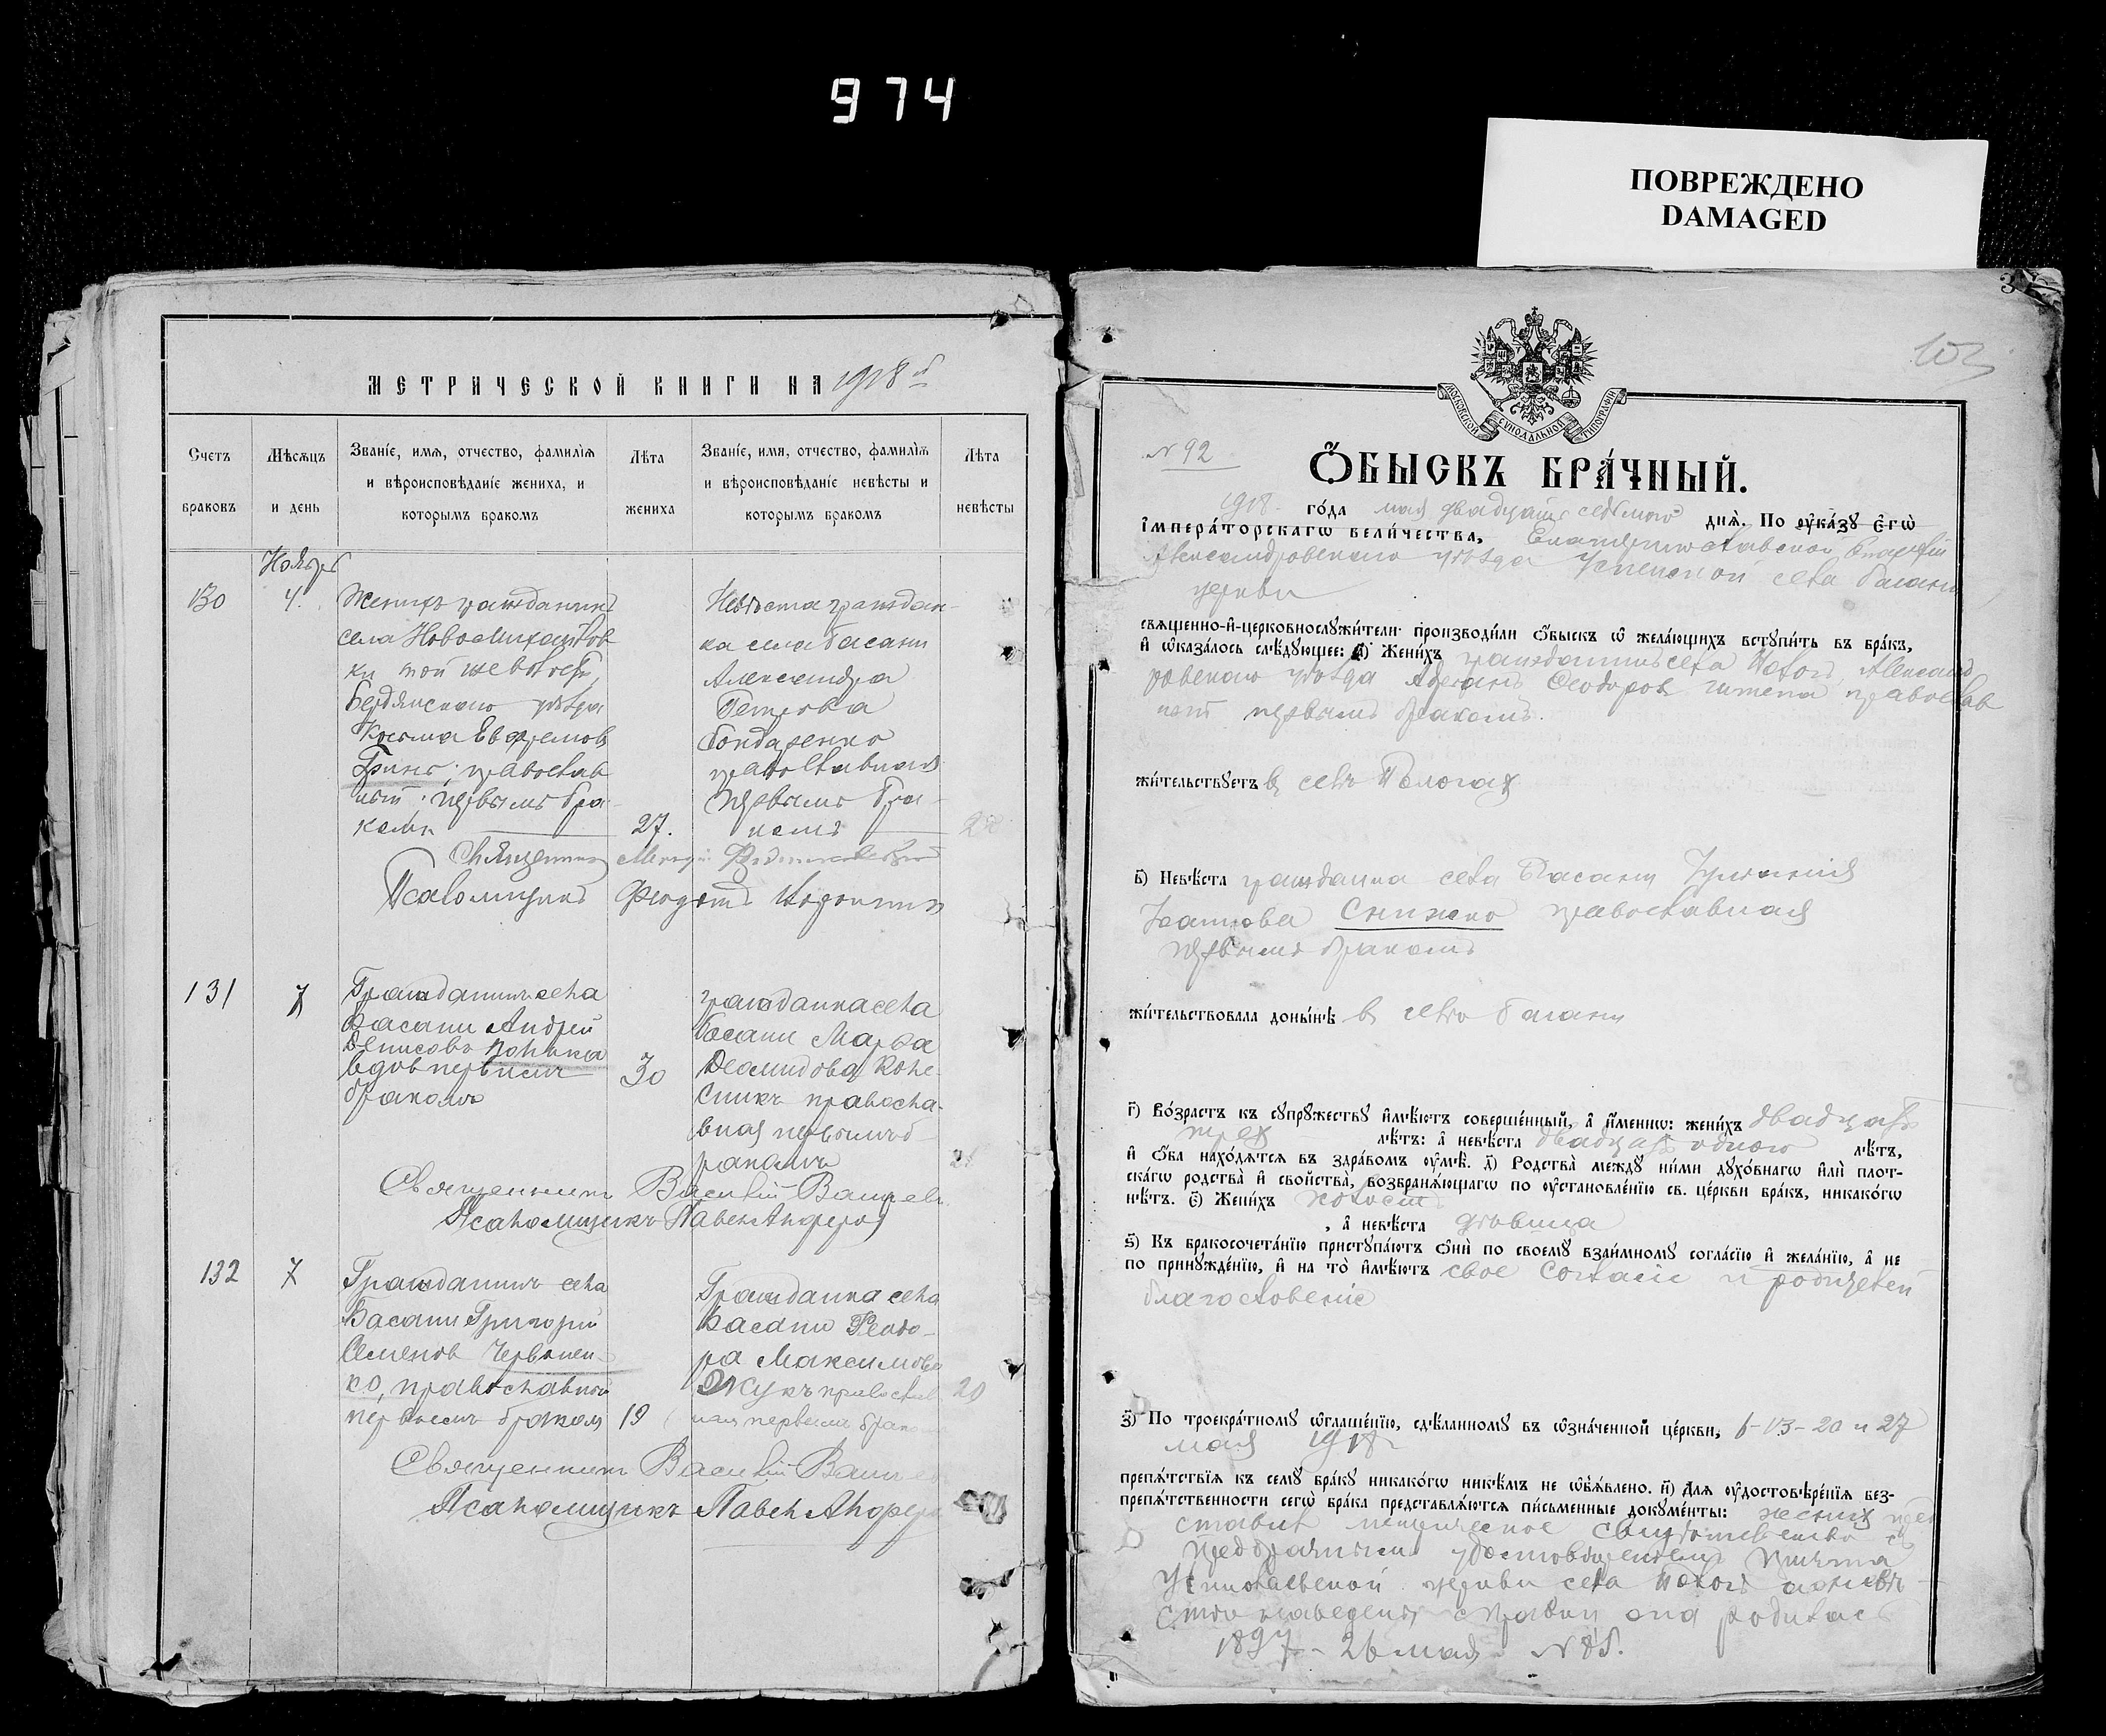 974
ПОВРЕЖДЕНО
DAMAGED
МЕТРИЧЕСКОЙ КНИГИ НА 1918 й
Счетъ браковъ
Мѣсяцъ и день
Званіе, имя, отчество, фамилія и вѣроисповѣданіе жениха, и которымъ бракомъ
Лѣта жениха
Званіе, имя, отчество, фамилія и вѣроисповѣданіе невѣсты и которымъ бракомъ
Лѣта невѣсты
Ноября
130
4.
Женихъ гражданинъ
села Новомихайлов
ки той же волости,
Бердянского уѣзда
Косьма Евфремовъ
Гринь, православ
ный первымъ бра-
комъ
27.
Невѣста граждан-
ка села Басани
Александра
Петрова
Бондаренко
православная
первымъ бра-
комъ
Священникъ
Псаломщикъ Феодотъ
131
7
Гражданинъ села
Басани Андрей
Денисовъ
вдов первымъ
бракомъ
30
гражданка села
Басани Марфа
Демидова Коле-
сникъ правосла-
вная первымъ б-
ракомъ
Священникъ Василій
Псаломщикъ Павелъ
132
7
Гражданинъ села
Басани Григорій
Семеновъ Червонен-
ко, православный
первымъ бракомъ
19
Гражданка села
Басани Феодо-
ра Максимова
Жукъ православ
ная первымъ браком
20
Священникъ Василій
Псаломщикъ Павелъ
МОСКОВСКОЙ СѴНОДАЛЬНОЙ ТИПОГРАФІИ
N 92
Ѻ҆БЫСКЪ БРА́ЧНЫЙ.
1918 го́да мая двадцать седьмого днѧ̀. По ᲂу҆ка́зꙋ Е҆гѡ̀
І҆мпера́торскагѡ вели́чества, Екатеринославской Епархіи
Александровскаго уѣзда Успенской села Басани
церкви
свѧще́нно-и҆-церковнослꙋжи́тели производи́ли ѻ҆́быскъ ѡ҆ жела́ющихъ встꙋпи́ть въ бра́къ,
и҆ ѡ҆каза́лось слѣ́дꙋющее: а҃) Жени́хъ гражданинъ села Пологъ, Александ
ровскаго уѣзда Феодоровъ православ
ный первымъ бракомъ.
жи́тельствꙋетъ въ селѣ Пологахъ
в҃) Невѣ́ста гражданка села Басани
Иванова Снижко православная
первымъ бракомъ
жи́тельствовала донынѣ въ селѣ Басани
г҃) Во́зрастъ къ сꙋпрꙋ́жествꙋ и҆мѣ́ютъ соверше́нный, а҆ и҆́менно: жени́хъ двадцать
трех лѣ́тъ: а҆ невѣ́ста двадцать одного лѣ́тъ,
и҆ ѻ҆́ба нахо́дѧтсѧ въ здра́вомъ ᲂу҆мѣ̀. д҃) Родства̀ междꙋ ни́ми дꙋхо́внагѡ и҆лѝ плот-
ска́гѡ родства̀ и҆ сво́йства, возбранѧ́ющагѡ по ᲂу҆становле́нїю св. це́ркви бра́къ, никако́гѡ
нѣ́тъ. є҃) Жени́хъ холостъ
, а҆ невѣ́ста дѣвица
ѕ҃) Къ бракосочета́нїю пристꙋпа́ютъ ѻ҆нѝ по своемꙋ̀ взаи́мномꙋ согла́сїю и҆ жела́нїю, а҆ не
по принꙋжде́нїю, и҆ на то̀ и҆мѣ́ютъ свое согласіе и родителей
благословеніе
з҃) По троекра́тномꙋ ѡ҆глаше́нїю, сдѣ́ланномꙋ въ ѡ҆зна́ченной це́ркви, 6-13-20 и 27
мая 1918 г
препѧ́тствїѧ къ семꙋ̀ бра́кꙋ никако́гѡ никѣ́мъ не ѡ҆б̾ѧ́влено. и҃) Длѧ ᲂу҆достовѣре́нїѧ без-
препѧ́тственности сегѡ̀ бра́ка представлѧ́ютсѧ пи́сьменные докꙋме́нты: женихъ пред
ставилъ метрическое свидѣтельство съ
предбрачнымъ удостовѣреніемъ причта
Николаевской церкви села Пологъ
справки она родилась
1897 - 26 мая N 85.